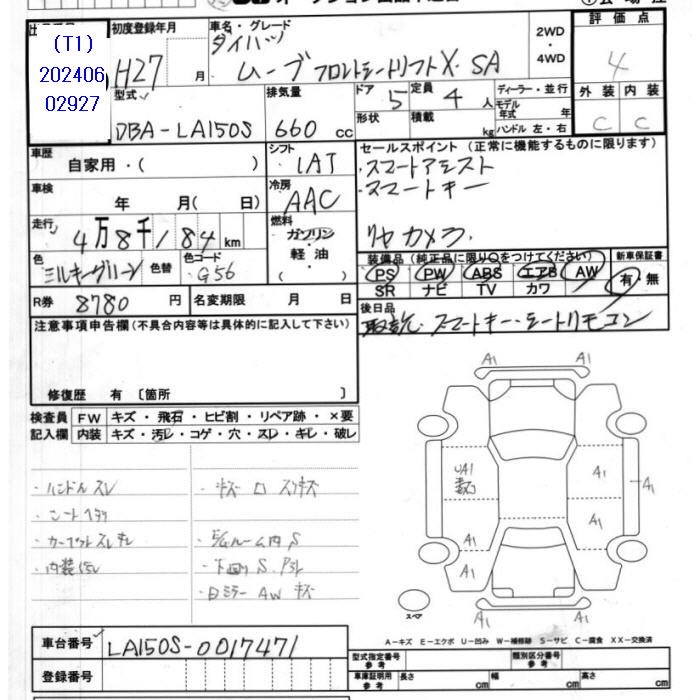 (T1)
202406
02927
初度登録年月
H27 月
車名・グレード
ダイハツ
ムーブ フロントシートリフトX・SA
2WD
・
4WD
評価点
4
外装 内装
C C
型式
DBA-LA150S
排気量
660 cc
ドア 5
定員 4 人
形状
積載 kg
ディーラー・並行
モデル年式 年
ハンドル 左・右
車歴
自家用・( )
シフト
IAT
車検
年 月( 日)
冷房
AAC
走行
4万8千184 km
燃料
ガソリン
・
軽油
( )
色
ミルキーグリーン
色替
色コード
G56
R券 8780 円
名変期限 月 日
セールスポイント (正常に機能するものに限ります)
・スマートアシスト
・スマートキー
リヤカメラ
装備品 (純正品に限り○をつけてください)
PS PW ABS エアB AW
SR ナビ TV カワ
新車保証書
有・無
後日品
取説・スマートキー・シートリモコン
注意事項申告欄(不具合内容等は具体的に記入して下さい)
修復歴 有 〔箇所 〕
検査員
記入欄
FW キズ・飛石・ヒビ割・リペア跡・×要
内装 キズ・汚レ・コゲ・穴・スレ・キレ・破レ
・ハンドルスレ
・シートヘタリ
・内装汚レ
・下回りS
・ミラー AW キズ
A1 A1
UA1
A1
A1
A1
A1
A1
A1 A1
スペア
A-キズ E-エクボ U-凹み W-補修跡 S-サビ C-腐食 XX-交換済
車台番号 LA150S-0017471
登録番号
型式指定番号
参考
類別区分番号
参考
車庫証明用
参考
長さ cm
幅 cm
高さ cm